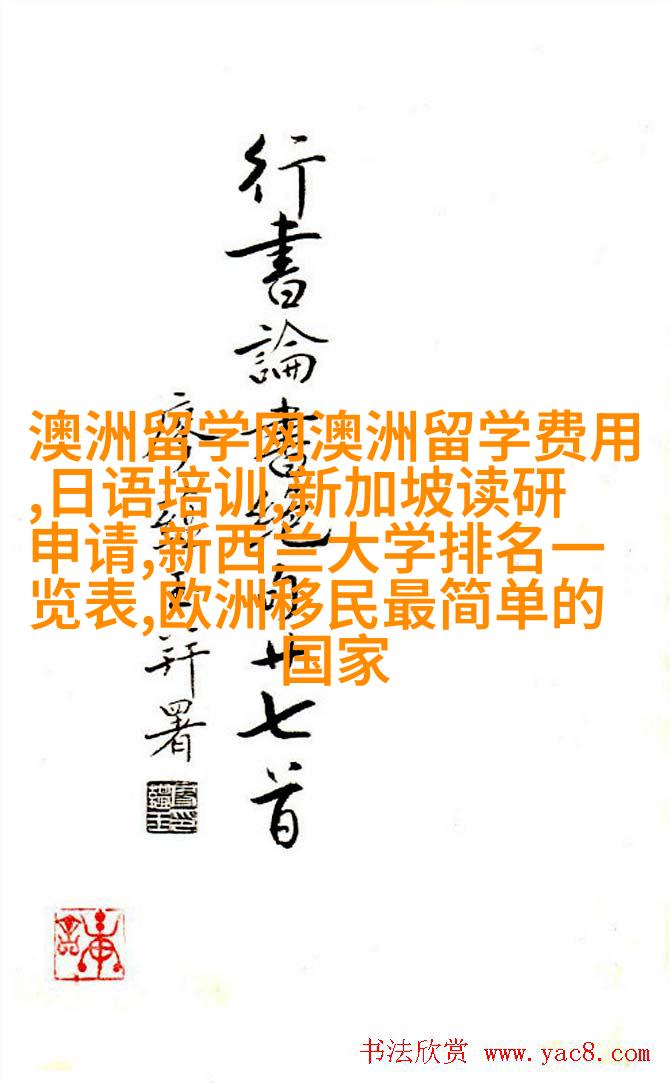 行書論書絕句廿七首
廖蘊玉并署
澳洲留学网澳洲留学费用
,日语培训,新加坡读研
申请,新西兰大学排名一
览表,欧洲移民最简单的
国家
书法欣赏 www.yac8.com